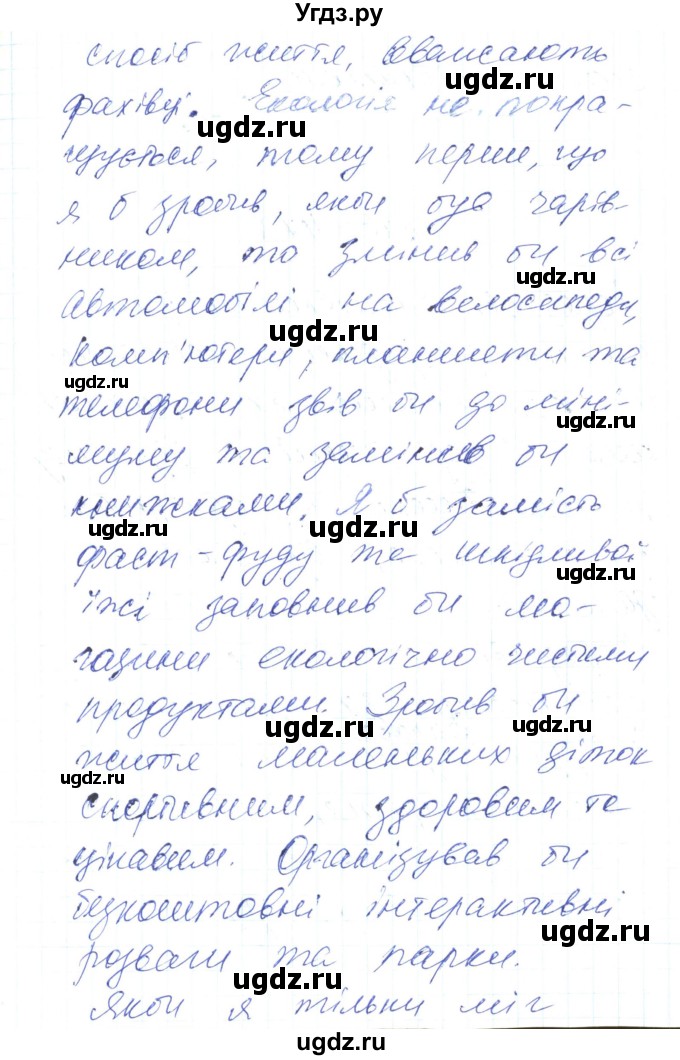 Угдз.ру
спосіб життя, вважають
фахівці. Екологія не покра-
ugdz.ru ugdz.ru
щується, тому перше, що
я б зробив, якби був чарів-
ником, то змінив би всі
ugdz.ru
автомобілі на велосипеди,
ugdz.ru
комп'ютери, планшети та
ugdz.ru
телефони звів би до міні-
муму та замінив би
книжками. Я б замість
ugdz.ru ugdz.ru
фаст-фуду та шкідливої
ugdz.ru
їжі заповнив би ма-
газини екологічно чистими
продуктами. Зробив би
ugdz.ru ugdz.ru
життя маленьких діток
ugdz.ru
спортивним, здоровим та
цікавим. Організував би
безкоштовні інтерактивні
ugdz.ru
розваги та парки.
ugdz.ru
Якби я тільки міг
ugdz.ru